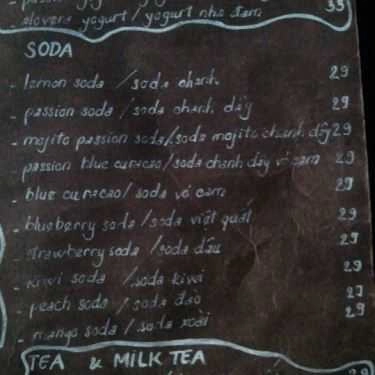 yogurt/yogurt nha đam 35
SODA
- lemon soda / soda chanh 29
- passion soda / soda chanh dây 29
- mojito passion soda/soda mojito chanh dây 29
- passion blue curacao/soda chanh dây vỏ cam 29
- blue curacao/ soda vỏ cam 29
- blueberry soda / soda việt quất 29
- strawberry soda / soda dâu 29
- kiwi soda / soda kiwi 29
- peach soda / soda đào 29
- mango soda / soda xoài 29
TEA & MILK TEA